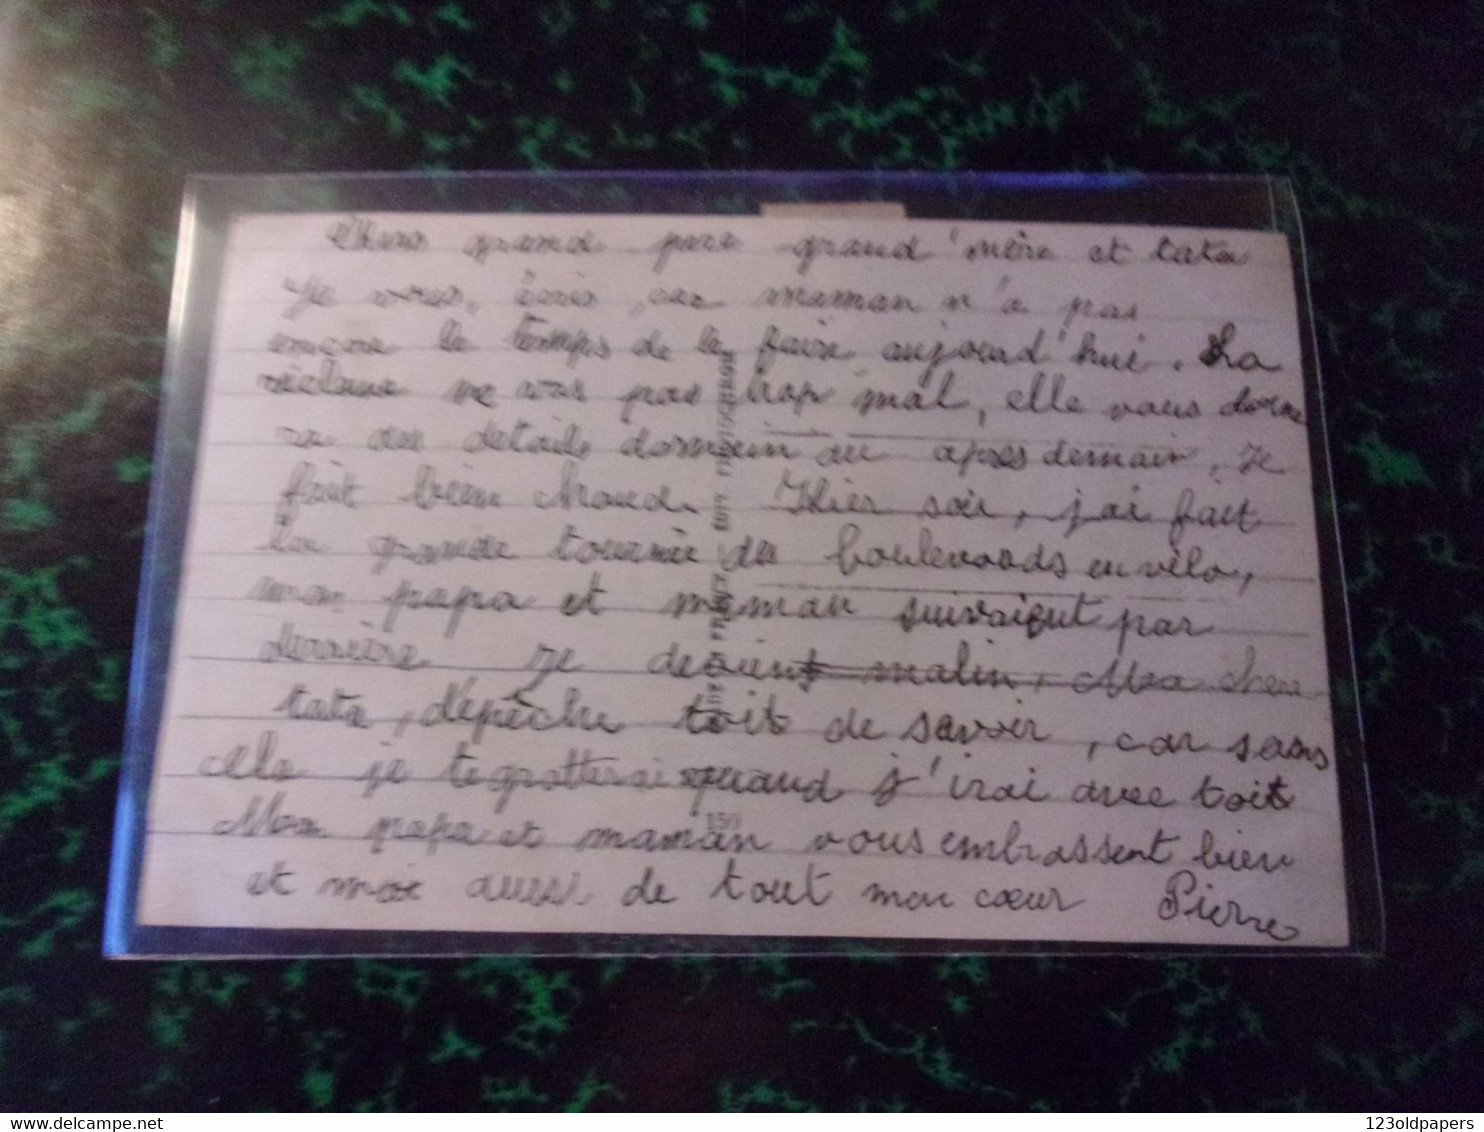 Chers grand père grand'mère et tata
Je vous écris car maman n'a pas
encore le temps de le faire aujourd'hui. La
ne vas pas trop mal, elle vous donne
ra des details domain ou apres demain. Je
fait bien chaud. Hier soir, j'ai fait
la grande tournée du boulevards en vélo,
mon papa et maman suivaient par
derrière je devient malin, Ma chere
tata, dépêche toit de savoir, car sans
cela je te grotterai quand j'irai avec toit
Mon papa et maman vous embrassent bien
et moi aussi de tout mon cœur Pierre
150
www.delcampe.net
123oldpapers